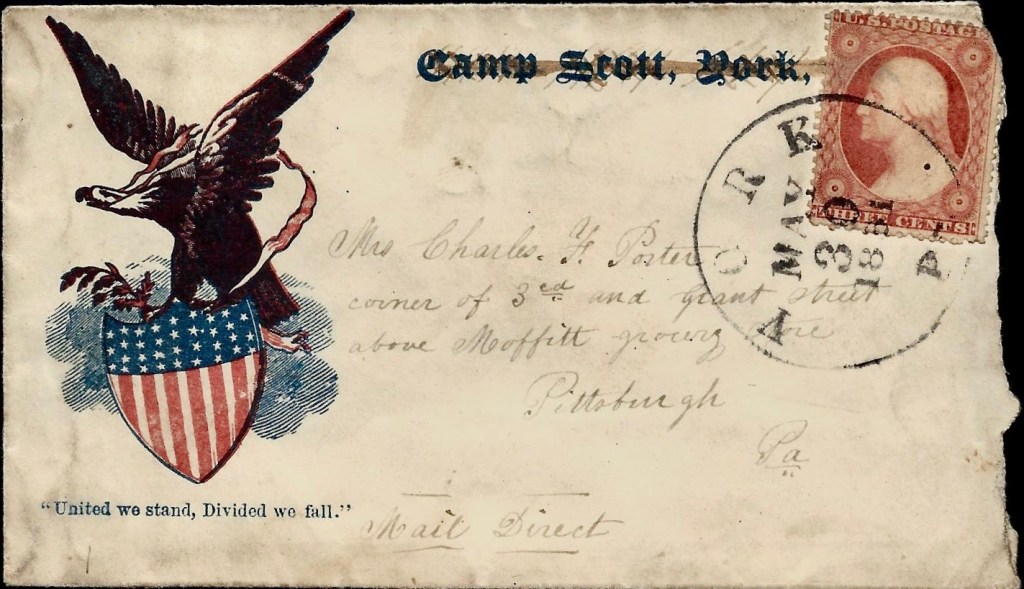 Camp Scott, York,
U.S. POSTAGE
THREE CENTS
YORK PA
MAY
30
1861
Mrs Charles. F. Porter
corner of 3rd and grant street
above Moffitt grocery store
Pittsburgh
Pa
Mail Direct
"United we stand, Divided we fall."